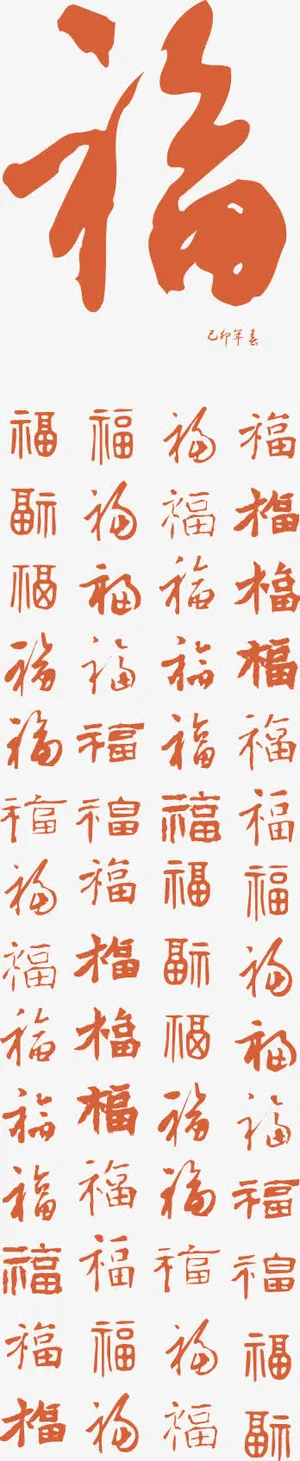 福
己卯年春
福 福 福 福
福 福 福 福
福 福 福 福
福 福 福 福
福 福 福 福
福 福 福 福
福 福 福 福
福 福 福 福
福 福 福 福
福 福 福 福
福 福 福 福
福 福 福 福
福 福 福 福
福 福 福 福